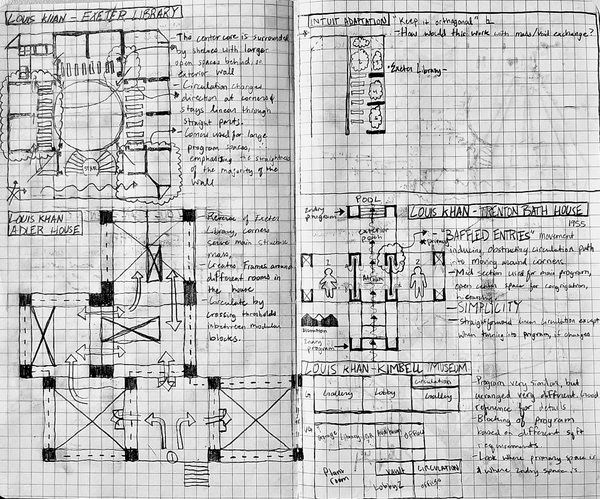 LOUIS KHAN - EXETER LIBRARY
- The center core is surrounded
by shelves with larger
open spaces behind, or
exterior wall
- Circulation changes
direction at corners &
stays linear through
straight parts.
- Corners used for large
program spaces,
emphasizing the straightness
of the majority of the
wall
STAIR
LOUIS KHAN
ADLER HOUSE
- Reverse of Exeter
Library, corners
serve main structure
mass.
- Creates frames around
different rooms in
the house
- Circulate by
crossing thresholds
inbetween modular
blocks.
INTUIT ADAPTATION "Keep it orthogonal"
- How would this work with mass/void exchange?
Exeter Library -
POOL
2ndry
program
exterior
POOL
LOUIS KHAN - TRENTON BATH HOUSE
1955
- "BAFFLED ENTRIES" movement
inducing obstructing circulation path
into moving around corners
- Mid section used for main program,
open center space for congregation,
hierarchy
- SIMPLICITY
- Straightforward linear circulation except
when turning into program, it changes
1
ATRIUM
2
2ndry
program
LOUIS KHAN - KIMBELL MUSEUM
circulation
Gallery
Lobby
Gallery
Library
office
VAULT
CIRCULATION
room
Lobby 2
offices
- Program very similar, but
arranged very different. Good
reference for details
- Blocking of program
based on different sqft
requirements
- Look where primary space is
& where 2ndry space is